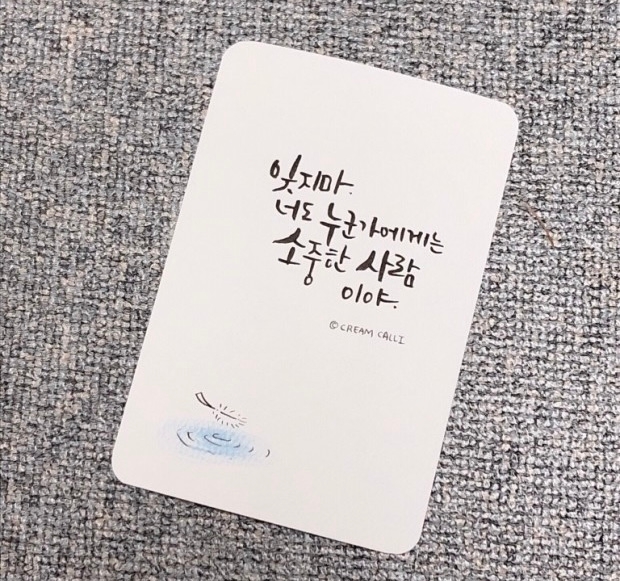 잊지마.
너도 누군가에게는
소중한 사람
이야.
© CREAM CALLI